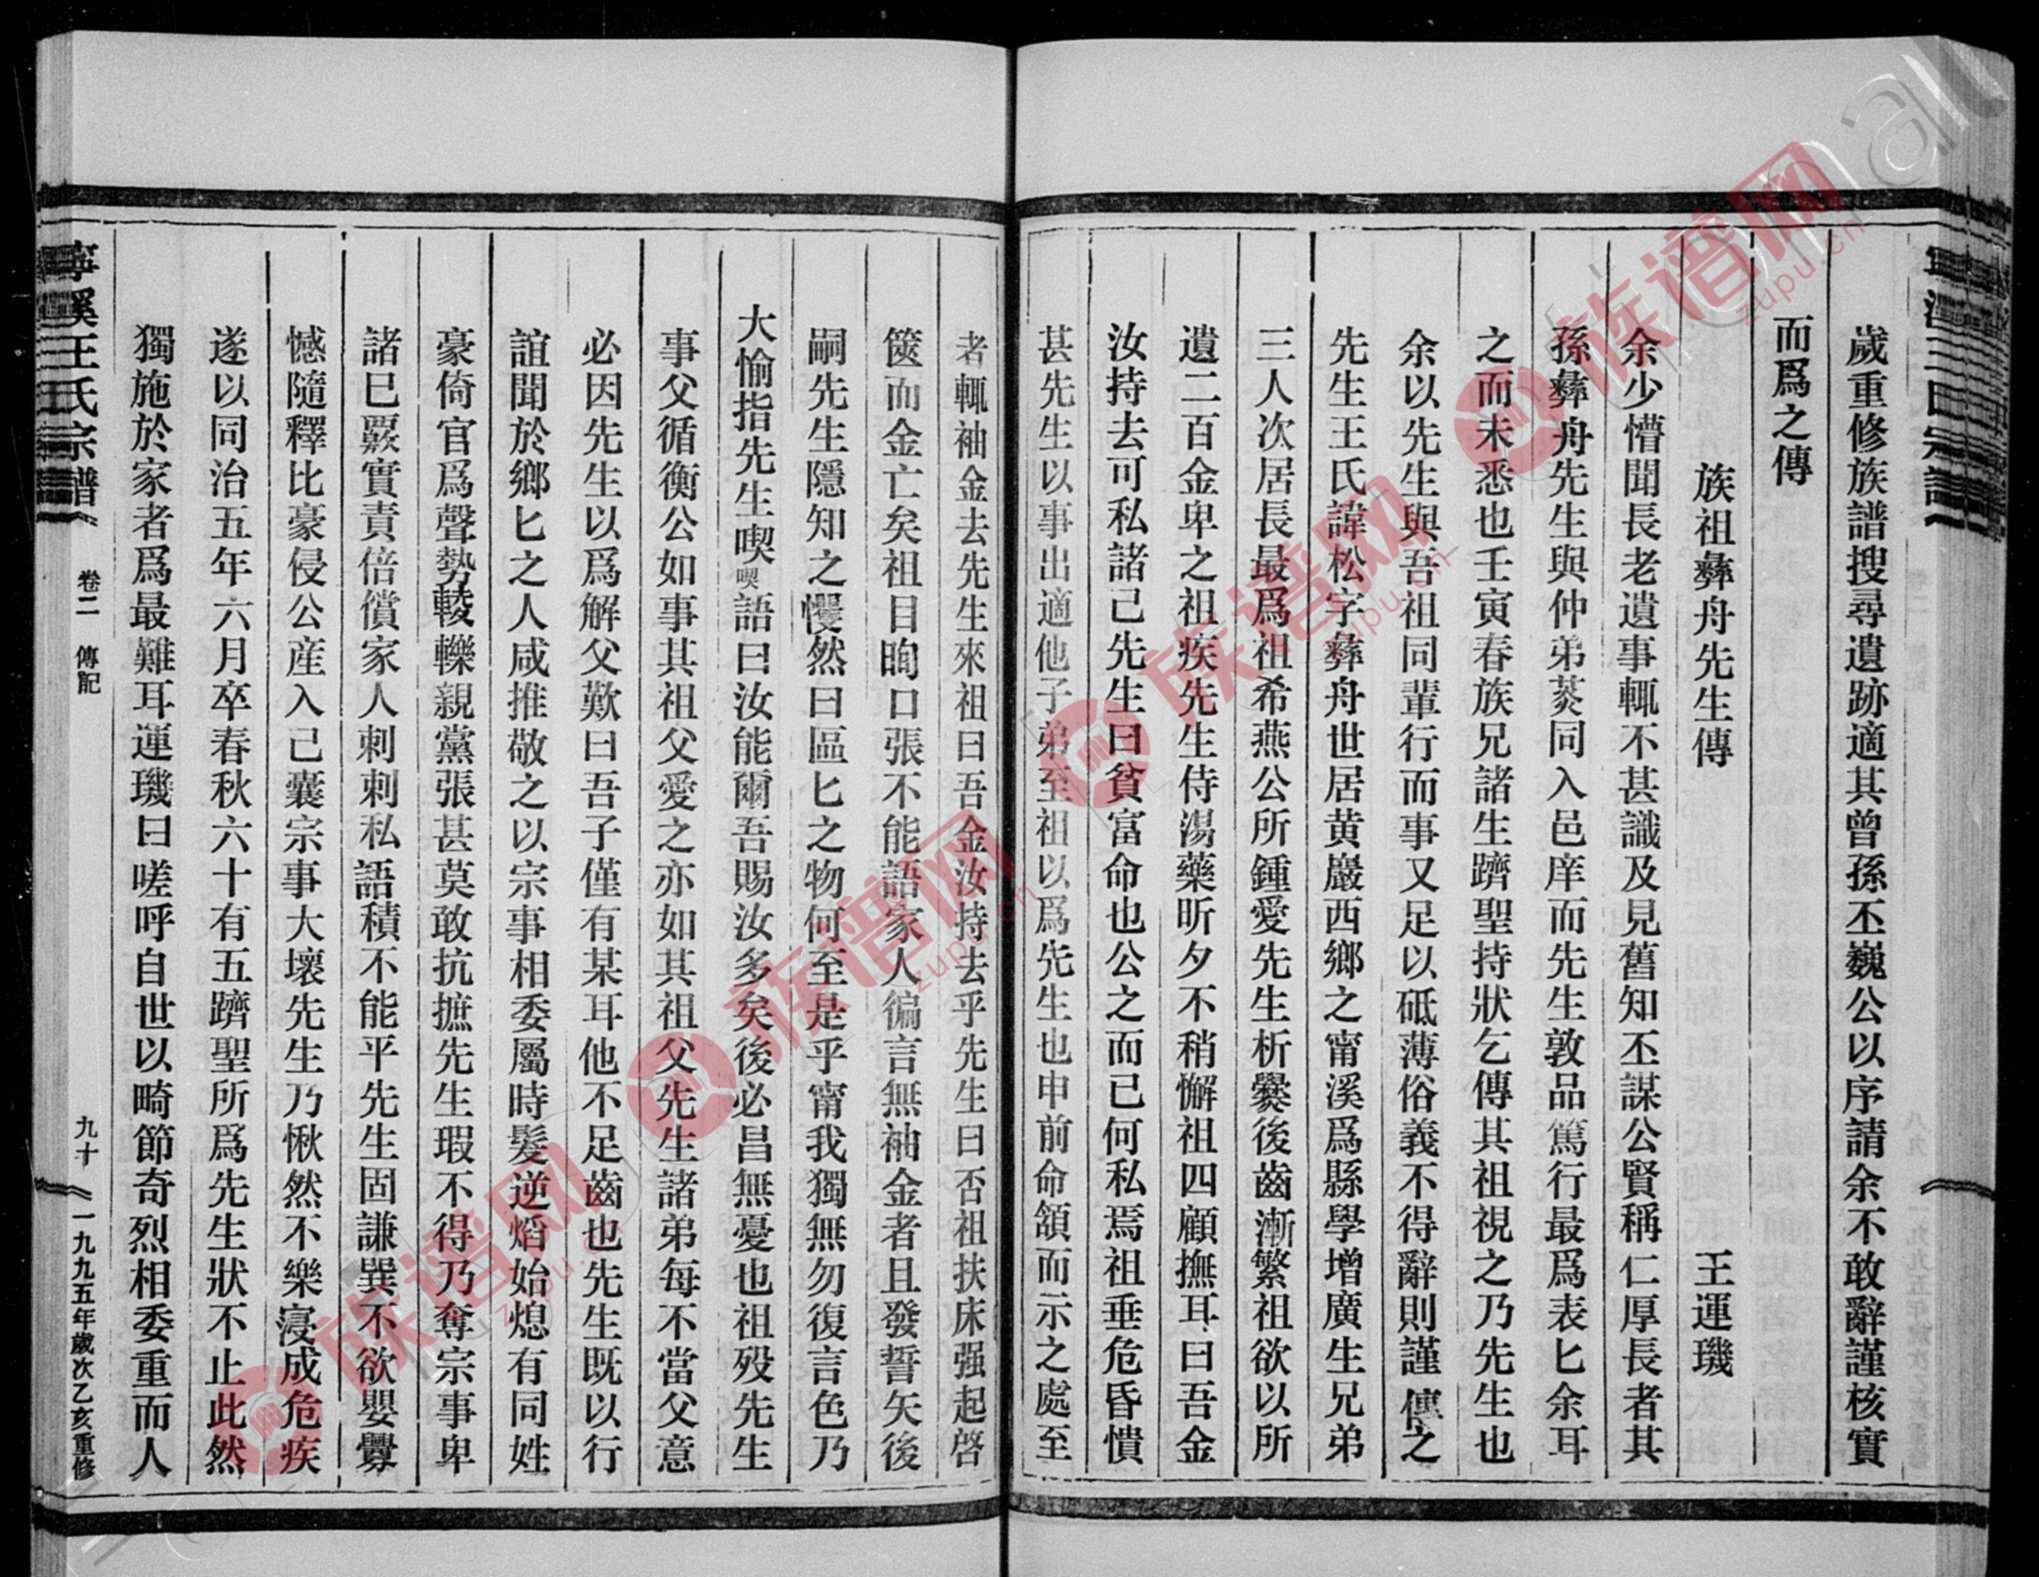 歲重修族譜搜尋遺跡適其曾孫丕巍公以序請余不敢辭謹核實
而爲之傳
族祖彝舟先生傳 王運璣
余少懵聞長老遺事輒不甚識及見舊知丕謀公賢稱仁厚長者其
孫彝舟先生與仲弟菼同入邑庠而先生敦品篤行最爲表匕余耳
之而未悉也壬寅春族兄諸生躋聖持狀乞傳其祖視之乃先生也
余以先生與吾祖同輩行而事又足以砥薄俗義不得辭則謹傳之
先生王氏諱松字彝舟世居黄巖西鄉之甯溪爲縣學增廣生兄弟
三人次居長最爲祖希燕公所鍾愛先生析爨後齒漸繁祖欲以所
遺二百金卑之祖疾先生侍湯藥昕夕不稍懈祖四顧撫耳曰吾金
汝持去可私諸己先生曰貧富命也公之而已何私焉祖垂危昏憒
甚先生以事出適他子弟至祖以爲先生也申前命頷而示之處至
者輒袖金去先生來祖曰吾金汝持去乎先生曰否祖扶床强起啓
篋而金亡矣祖目瞤口張不能語家人徧言無袖金者且發誓矢後
嗣先生隱知之戄然曰區匕之物何至是乎甯我獨無勿復言色乃
大愉指先生喫喫語曰汝能爾吾賜汝多矣後必昌無憂也祖歿先生
事父循衡公如事其祖父愛之亦如其祖父先生諸弟每不當父意
必因先生以爲解父歎曰吾子僅有某耳他不足齒也先生既以行
誼聞於鄉匕之人咸推敬之以宗事相委屬時髮逆熖始熄有同姓
豪倚官爲聲勢輘轢親黨張甚莫敢抗摭先生瑕不得乃奪宗事卑
諸巳覈實責倍償家人刺刺私語積不能平先生固謙巽不欲嬰釁
憾隨釋比豪侵公産入己囊宗事大壞先生乃愀然不樂寖成危疾
遂以同治五年六月卒春秋六十有五躋聖所爲先生狀不止此然
獨施於家者爲最難耳運璣曰嗟呼自世以畸節奇烈相委重而人
寧溪王氏宗譜 卷二 傳記 九十 一九九五年歲次乙亥重修